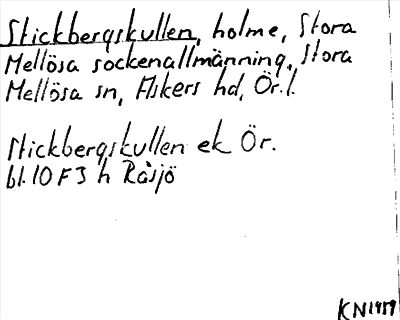 Stickbergskullen, holme, Stora
Mellösa sockenallmänning, Stora
Mellösa sn, Askers hd, Ör. l.
Stickbergskullen ek Ör.
bl. 10 F 3 h Råsjö
KN 1959